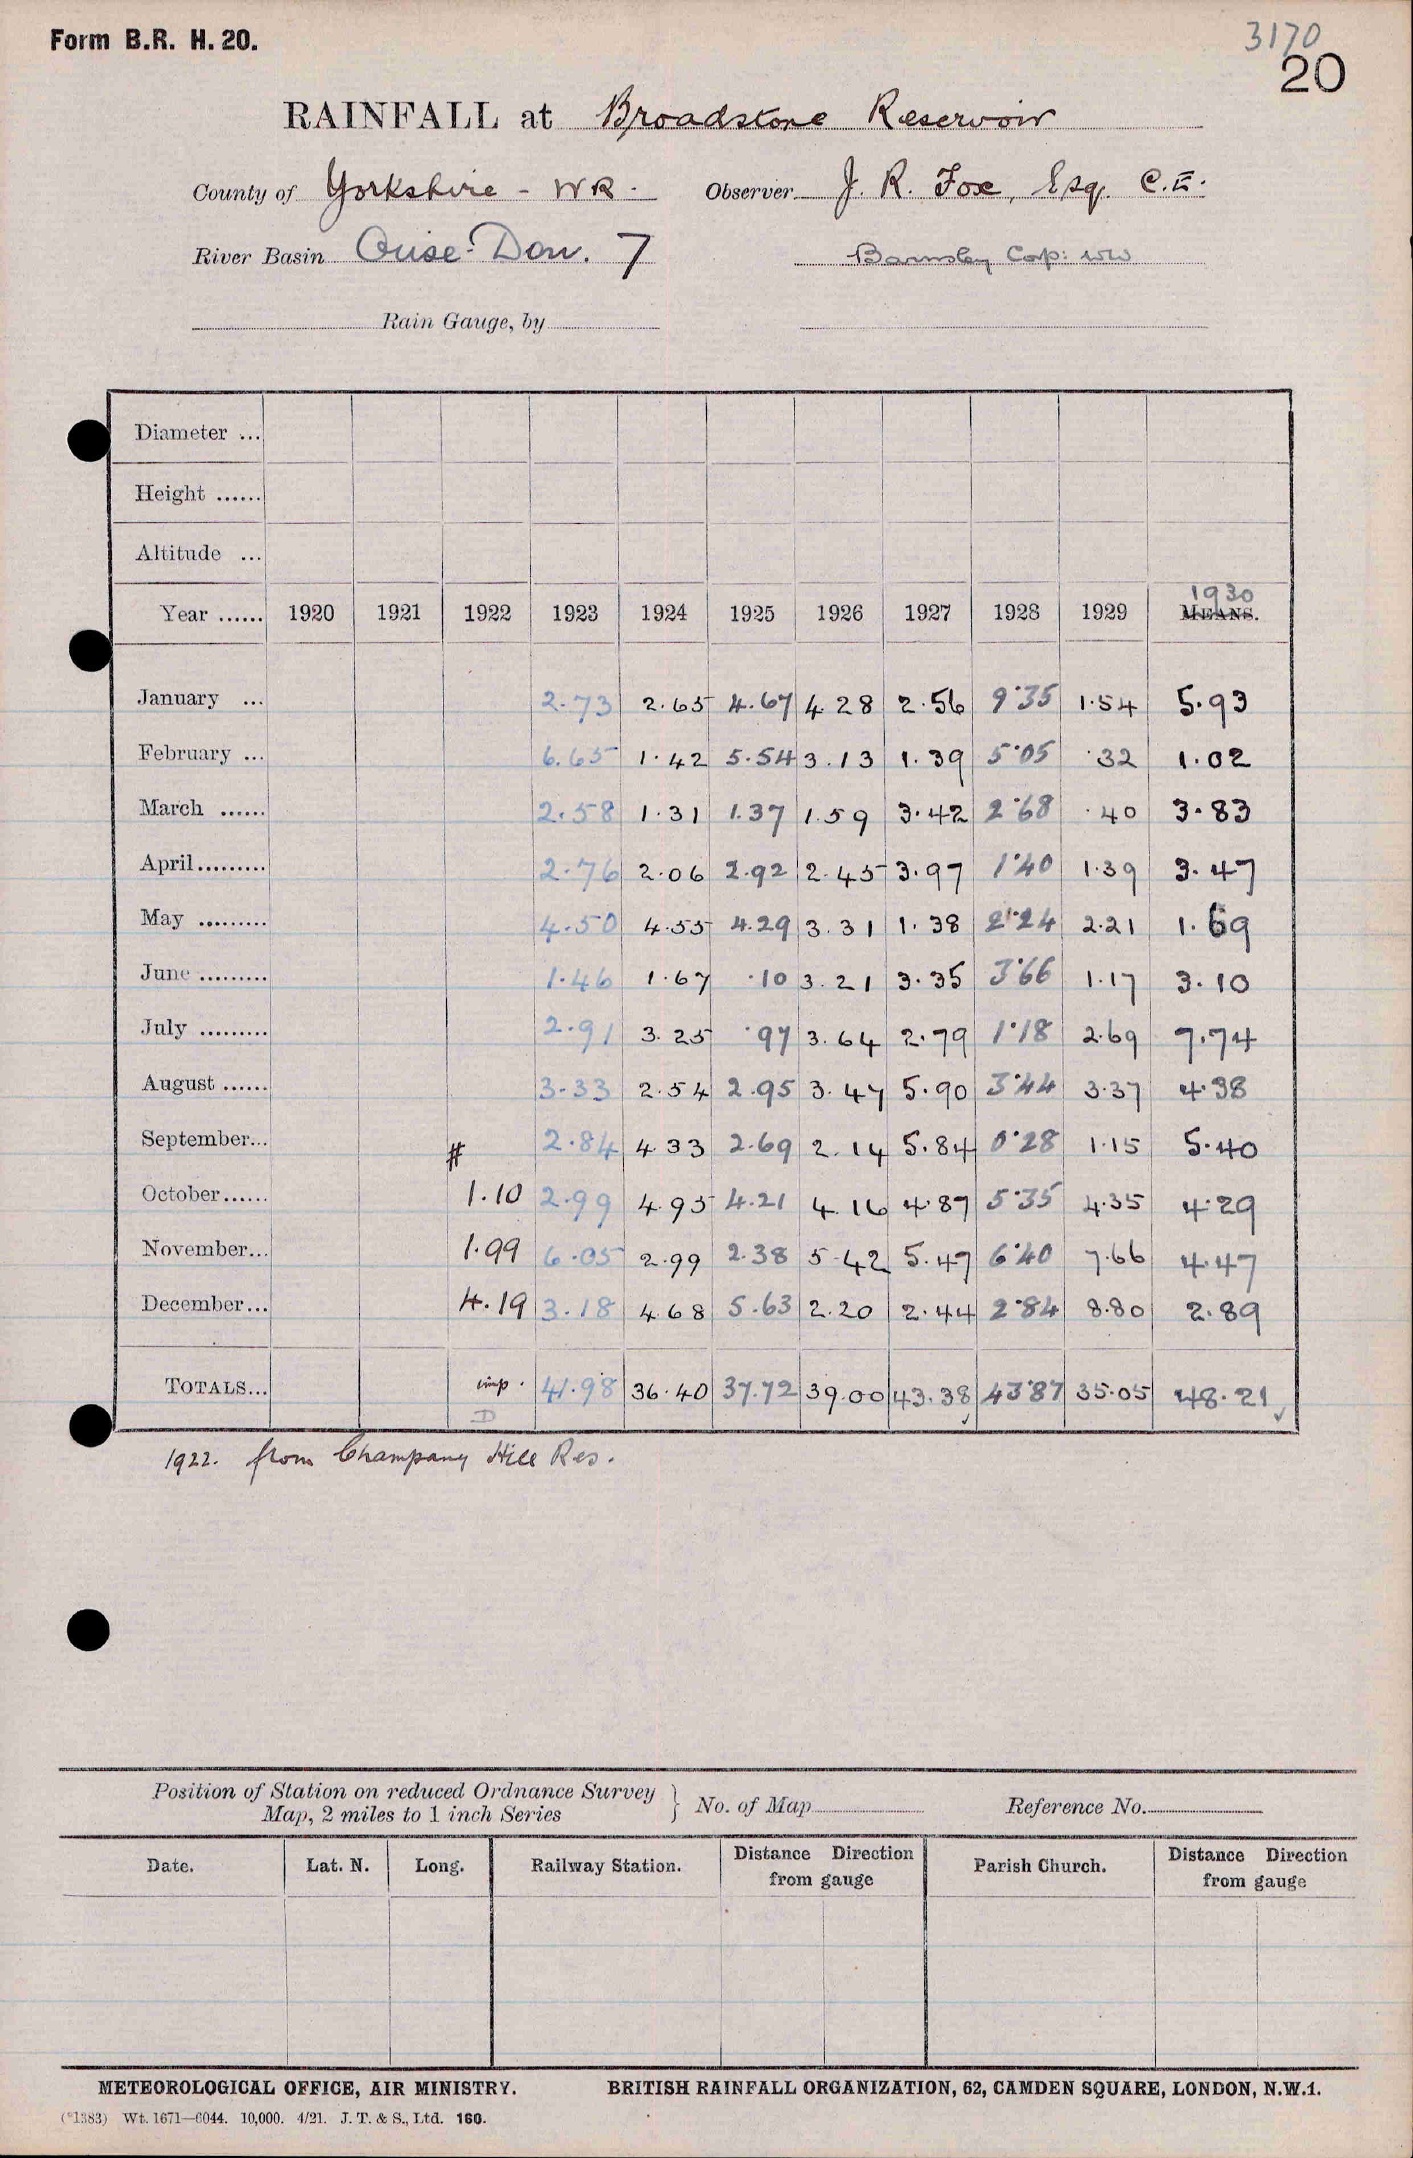 Form B.R. H. 20.
3170
20
RAINFALL at Broadstone Reservoir
County of Yorkshire - WR. Observer J. R. Fox, Esq. C.E.
River Basin Ouse-Don. 7 Barnsley Corp: WW
Rain Gauge, by
Diameter ...
Height ......
Altitude ...
1930
Year ...... 1920 1921 1922 1923 1924 1925 1926 1927 1928 1929 MEANS.
January ... 2.73 2.65 4.67 4.28 2.56 9.35 1.54 5.93
February ... 6.65 1.42 5.54 3.13 1.39 5.05 .32 1.02
March ...... 2.58 1.31 1.37 1.59 3.42 2.68 .40 3.83
April......... 2.76 2.06 2.92 2.45 3.97 1.40 1.39 3.47
May ......... 4.50 4.55 4.29 3.31 1.38 2.24 2.21 1.69
June ......... 1.46 1.67 .10 3.21 3.35 3.66 1.17 3.10
July ......... 2.91 3.25 .97 3.64 2.79 1.18 2.69 7.74
August ...... 3.33 2.54 2.95 3.47 5.90 3.44 3.37 4.38
September... # 2.84 4.33 2.69 2.14 5.84 0.28 1.15 5.40
October...... 1.10 2.99 4.95 4.21 4.16 4.87 5.35 4.35 4.29
November... 1.99 6.05 2.99 2.38 5.42 5.47 6.40 7.66 4.47
December... 4.19 3.18 4.68 5.63 2.20 2.44 2.84 8.80 2.89
TOTALS... imp. 41.98 36.40 37.72 39.00 43.38 43.87 35.05 48.21
D
1922. from Champany Hill Res.
Position of Station on reduced Ordnance Survey
Map, 2 miles to 1 inch Series } No. of Map Reference No.
Date. Lat. N. Long. Railway Station. Distance Direction from gauge Parish Church. Distance Direction from gauge
METEOROLOGICAL OFFICE, AIR MINISTRY. BRITISH RAINFALL ORGANIZATION, 62, CAMDEN SQUARE, LONDON, N.W.1.
(*1383) Wt. 1671—6044. 10,000. 4/21. J. T. & S., Ltd. 160.